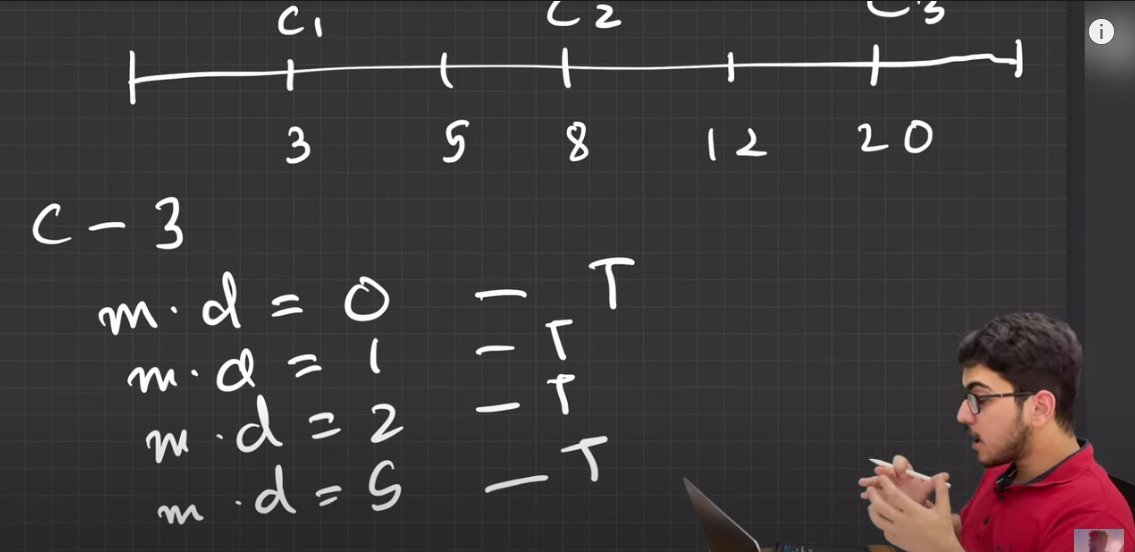 C1 C2 C3
3 5 8 12 20
C - 3
m.d = 0 - T
m.d = 1 - T
m.d = 2 - T
m.d = 5 - T